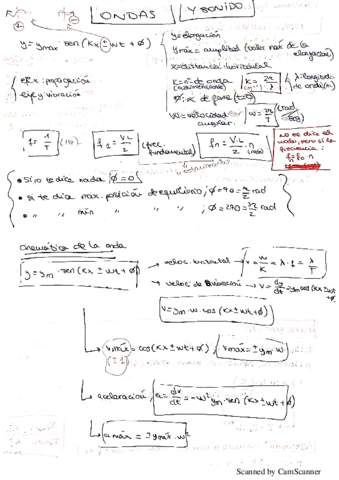 ONDAS Y SONIDO
y = ymax sen (kx ± wt + ϕ)
y = elongación
ymáx = amplitud (valor máx de la elongación)
x = distancia horizontal
k = nº de onda k = 2π/λ (m⁻¹)
λ: longitud de onda (m)
ϕ: de fase (t=0)
W = velocidad angular. W = 2π/T (rad/seg)
eje x: propagación
eje y: vibración
f = 1/T (Hz)
(frec. fundamental)
estacionarias
no me dice el modo, pero sí la frecuencia:
f = f₀ · n
• Si no te dice nada ϕ = 0
• si te dice máx. posición de equilibrio; ϕ = 90 = π/2 rad
• " " mín " " " ; ϕ = 270 = rad
Cinemática de la onda
y = ym · sen (kx ± wt + ϕ)
→ veloc. horizontal → v = w/k = λ · f = λ/T
→ veloc de vibración → v = dy/dt = ym cos (kx ± wt + ϕ)
v = ym w · cos (kx ± wt + ϕ)
→ vmáx = cos (kx ± wt + ϕ) ; vmáx = ± ym · w
(± 1)
→ aceleración; a = dv/dt = -w² ym · sen (kx ± wt + ϕ)
→ a máx = ± ymáx · w²
Scanned by CamScanner